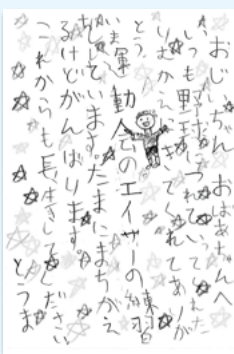 おじいちゃんおばあちゃんへ
いつも野球につれていってくれた
りむかえにきてくれてありが
とう。
いま運動会のエイサーの練習
をしています。たまにまちがえ
るけどがんばります。
これからも長生きしてください
とうま